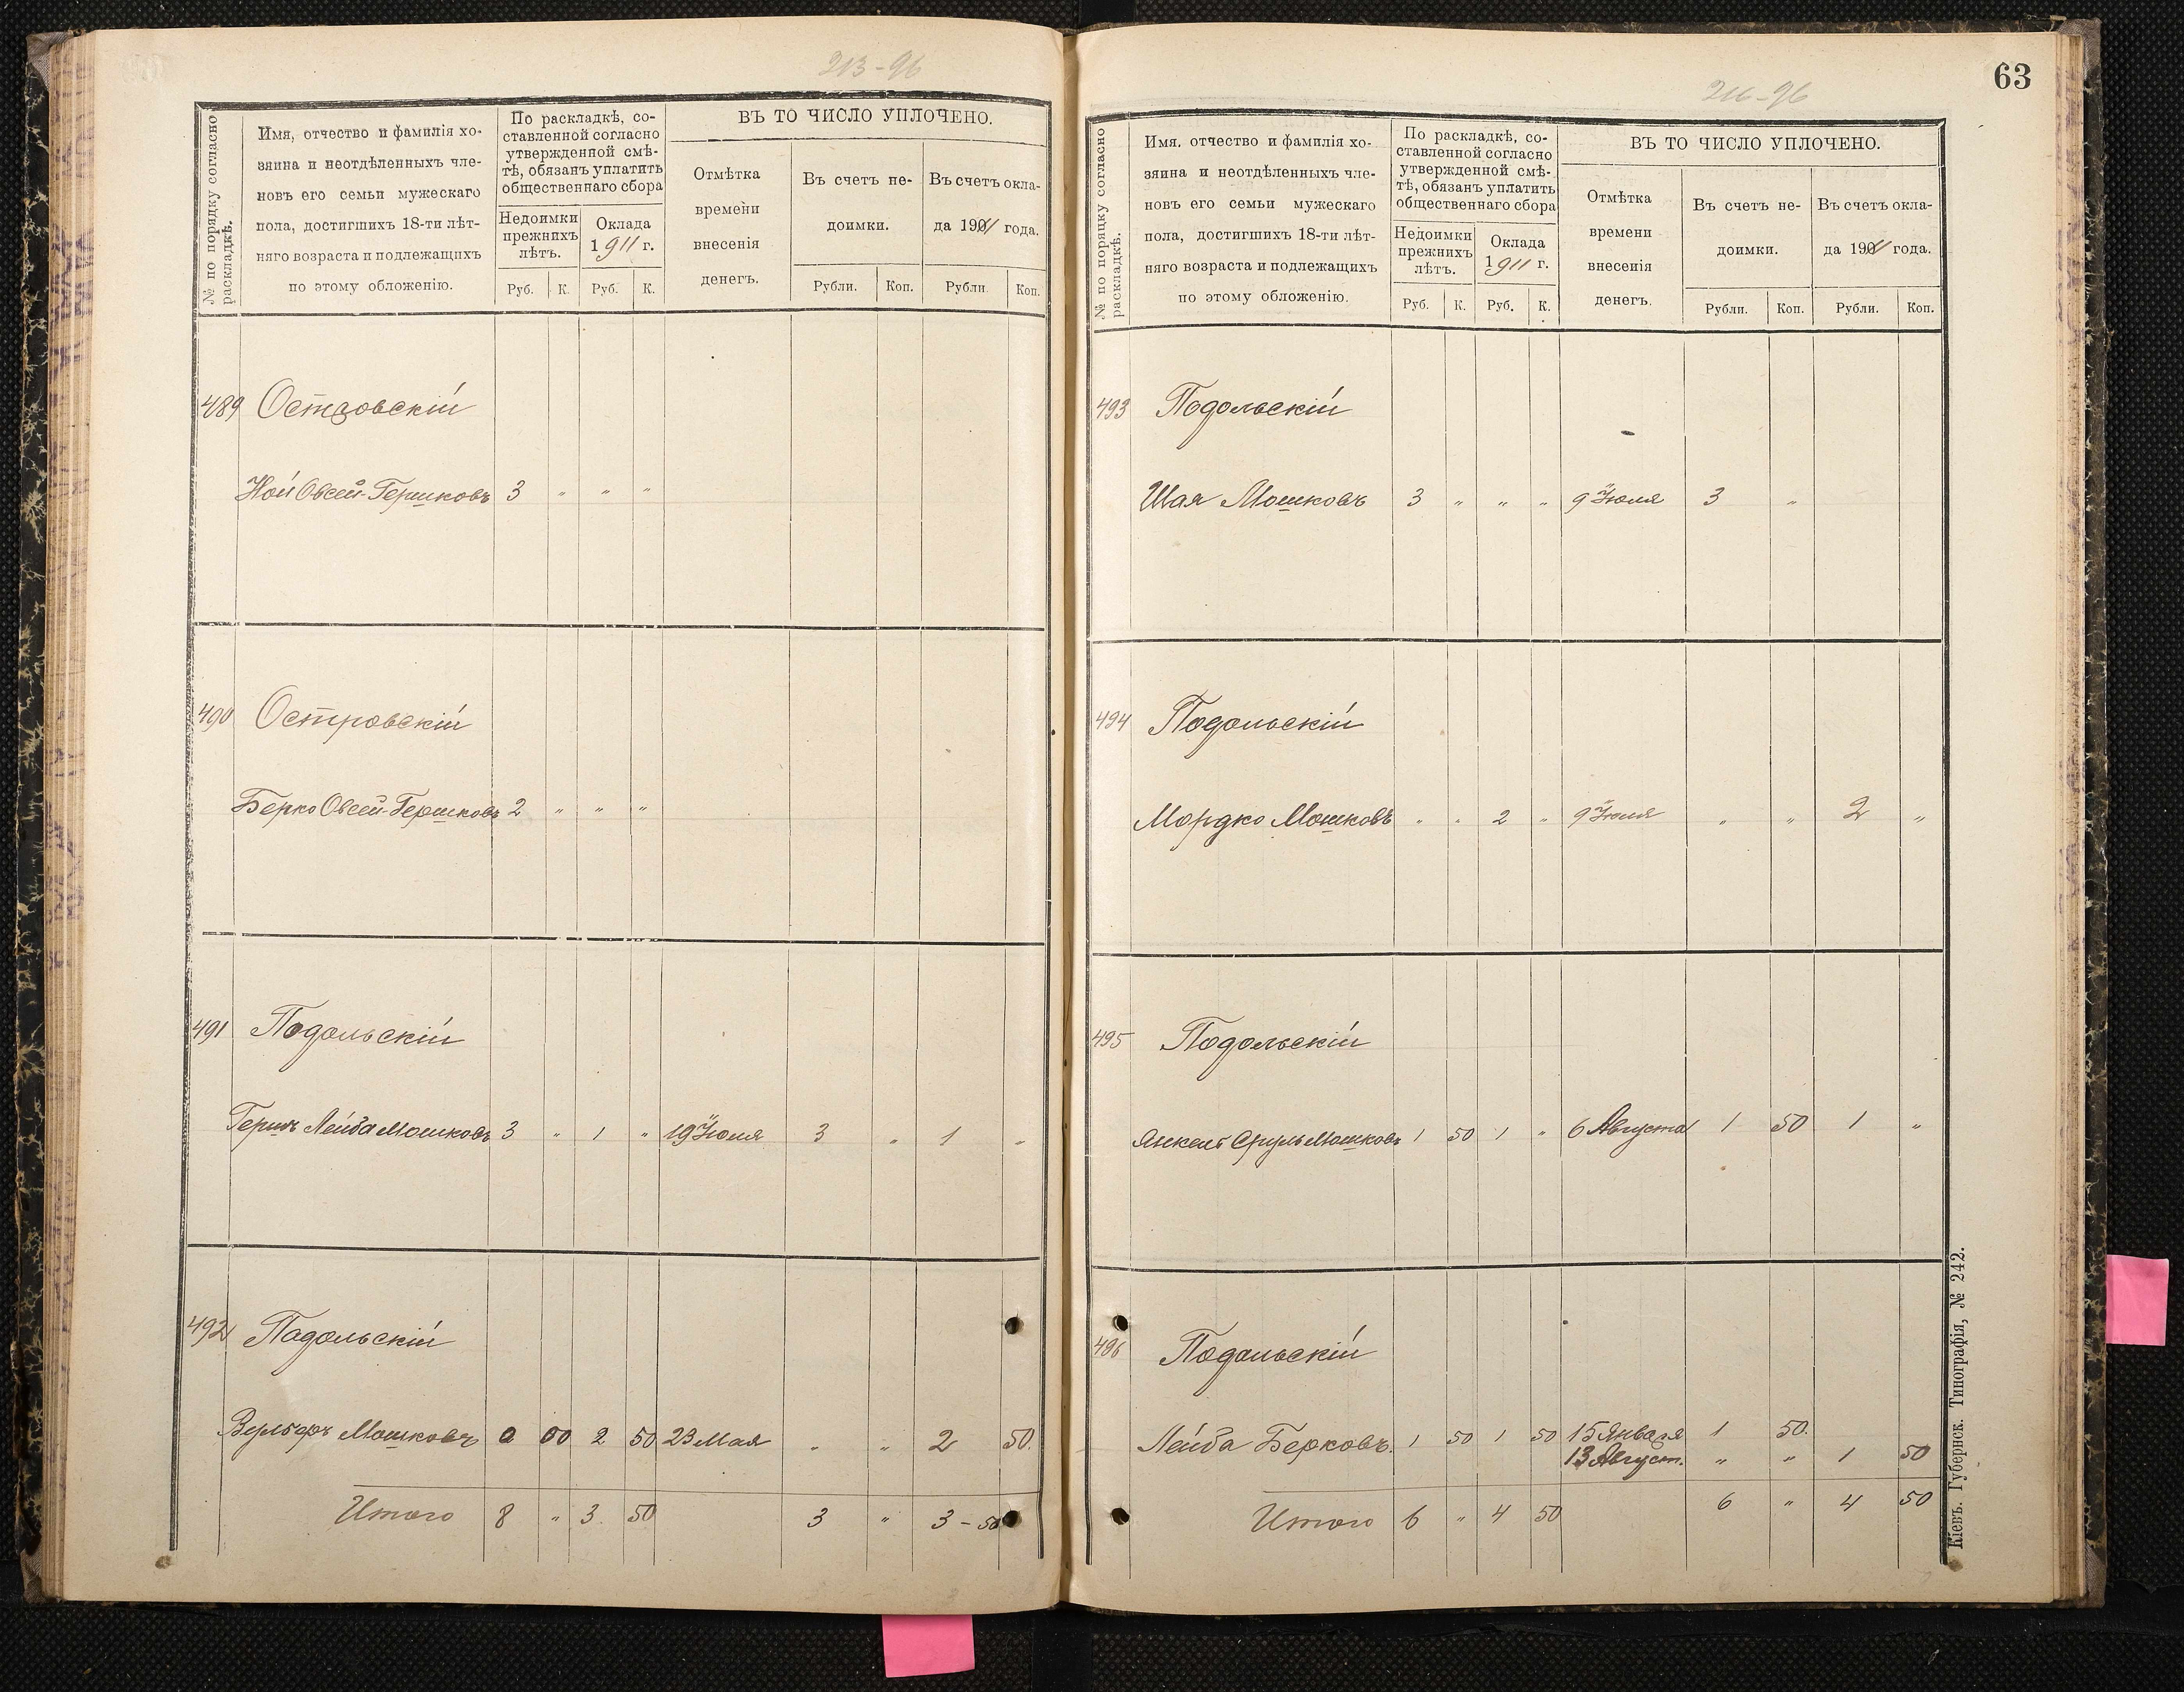 213-96
№ по порядку согласно раскладкѣ.
Имя, отчество и фамилія хо-
зяина и неотдѣленныхъ чле-
новъ его семьи мужескаго
пола, достигшихъ 18-ти лѣт-
няго возраста и подлежащихъ
по этому обложенію.
По раскладкѣ, со-
ставленной согласно
утвержденной смѣ-
тѣ, обязанъ уплатить
общественнаго сбора
Недоимки
прежнихъ
лѣтъ.
Оклада
1911 г.
Руб. К. Руб. К.
ВЪ ТО ЧИСЛО УПЛОЧЕНО.
Отмѣтка
времени
внесенія
денегъ.
Въ счетъ не-
доимки.
Въ счетъ окла-
да 1911 года.
Рубли. Коп. Рубли. Коп.
489 Островскій
Ной Овсей-Гершковъ 3 " " "
490 Островскій
Берко Овсей-Гершковъ 2 " " "
491 Подольскій
Гершъ Лейба Мошковъ 3 " 1 " 19 Іюля 3 " 1 "
492 Подольскій
Мошковъ 0 00 2 50 23 Мая " " 2 50.
Итого 8 " 3 50 3 " 3-50
63
216-96
№ по порядку согласно раскладкѣ.
Имя, отчество и фамилія хо-
зяина и неотдѣленныхъ чле-
новъ его семьи мужескаго
пола, достигшихъ 18-ти лѣт-
няго возраста и подлежащихъ
по этому обложенію.
По раскладкѣ, со-
ставленной согласно
утвержденной смѣ-
тѣ, обязанъ уплатить
общественнаго сбора
Недоимки
прежнихъ
лѣтъ.
Оклада
1911 г.
Руб. К. Руб. К.
ВЪ ТО ЧИСЛО УПЛОЧЕНО.
Отмѣтка
времени
внесенія
денегъ.
Въ счетъ не-
доимки.
Въ счетъ окла-
да 1911 года.
Рубли. Коп. Рубли. Коп.
493 Подольскій
Шая Мошковъ 3 " " " 9 Іюля 3 "
494 Подольскій
Мордко Мошковъ " " 2 " 9 Іюля " " 2 "
495 Подольскій
Янкель Сруль Мошковъ 1 50 1 " 6 Августа 1 50 1 "
496 Подольскій
Лейба Берковъ. 1 50 1 50 15 Января 1 50.
13 Август. " " 1 50
Итого 6 " 4 50 6 " 4 50
Кіевъ. Губернск. Типографія, № 242.